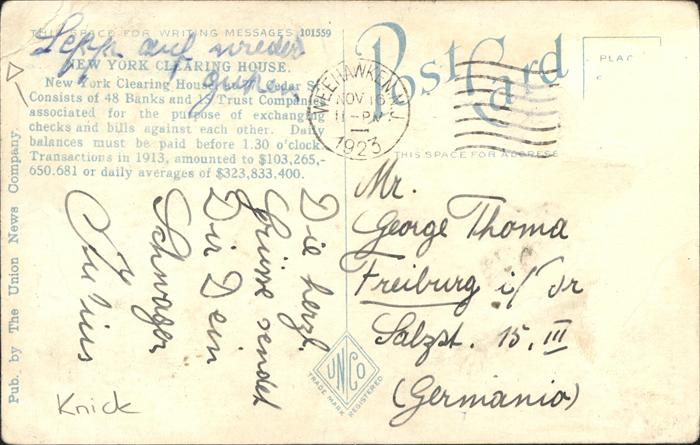 THIS SPACE FOR WRITING MESSAGES 101559
auf wieder
NEW YORK CLEARING HOUSE.
New York Clearing House, Cedar St.
Consists of 48 Banks and Trust Companies
associated for the purpose of exchanging
checks and bills against each other. Daily
balances must be paid before 1.30 o'clock.
Transactions in 1913, amounted to $103,265,-
650.681 or daily averages of $323,833,400.
Die herzl.
Grüsse sendet
Dir Dein
Schwager
Julius
Knick
Pub. by The Union News Company.
Post Card
PLAC
WEEHAWKEN, N.J.
NOV 16
11-PM
1923
THIS SPACE FOR ADDRESS
Mr.
George Thoma
Freiburg i/Br
Salzst. 15, III
(Germania)
UNCO
TRADE MARK REGISTERED